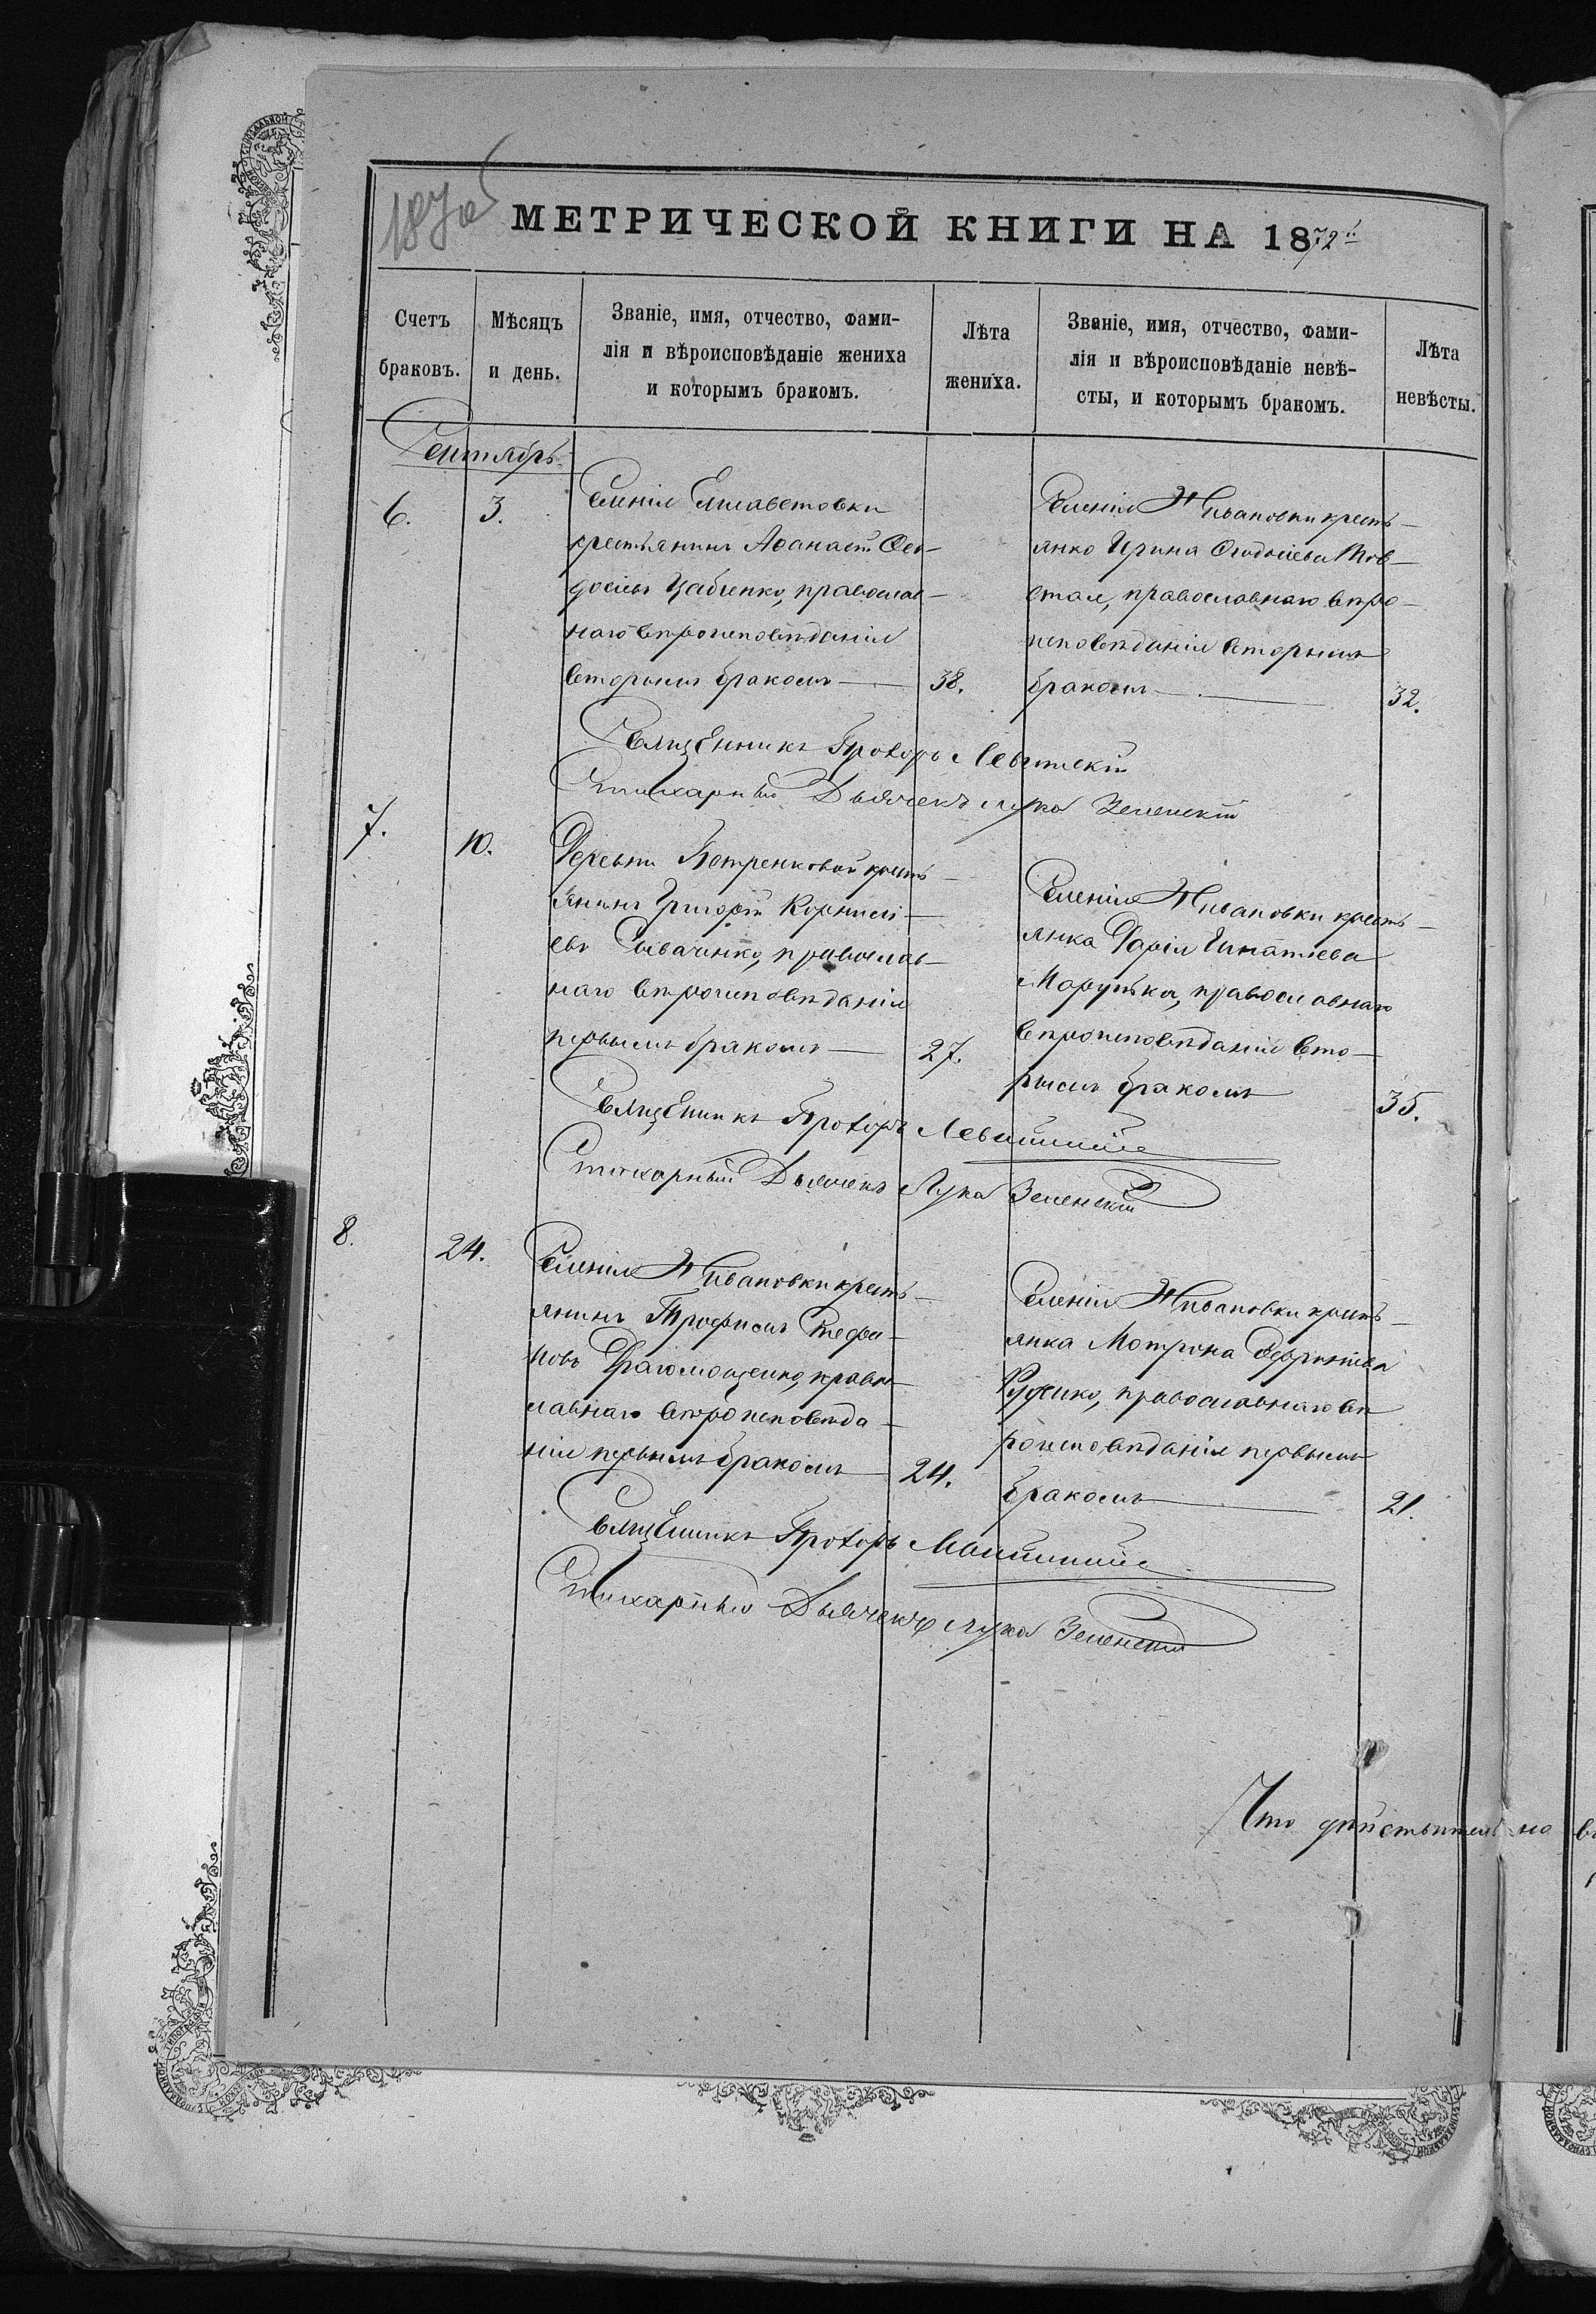 187об
МЕТРИЧЕСКОЙ КНИГИ НА 1872й
Счетъ
браковъ.
Мѣсяцъ
и день.
Званіе, имя, отчество, фами-
лія и вѣроисповѣданіе жениха
и которымъ бракомъ.
Лѣта
жениха.
Званіе, имя, отчество, фами-
лія и вѣроисповѣданіе невѣ-
сты, и которымъ бракомъ.
Лѣта
невѣсты.
Сентябрь
6.
3.
Селенія Елисаветовки
крестьянинъ Аѳанасій Ѳео-
досіевъ православ-
наго вѣроисповѣданія
вторымъ бракомъ
38.
Селенія Живановки кресть-
янка Ирина Ѳеодосіева Тов-
стая, православнаго вѣро-
исповѣданія вторымъ
бракомъ
32.
Священникъ Прохоръ Левитскій
Стихарный Дьячекъ Лука Зеленскій
7.
10.
Деревни Петренковой кресть-
янинъ Григорій Корнилі-
евъ православ-
наго вѣроисповѣданія
первымъ бракомъ
27.
Селенія Живановки кресть-
янка Дарія Игнатіева
православнаго
вѣроисповѣданія вто-
рымъ бракомъ
35.
Священникъ Прохоръ Левитскій
Стихарный Дьячекъ Лука Зеленскій
8.
24.
Селенія Живановки кресть-
янинъ Трофимъ Стефа-
новъ Драгомощенко, право-
славнаго вѣроисповѣда-
нія первымъ бракомъ
24.
Селенія Живановки кресть-
янка Мотрона
Руденко, православнаго вѣ-
роисповѣданія первымъ
бракомъ
21.
Священникъ Прохоръ Левитскій
Стихарный Дьячекъ Лука Зеленскій
Что дѣйствительно